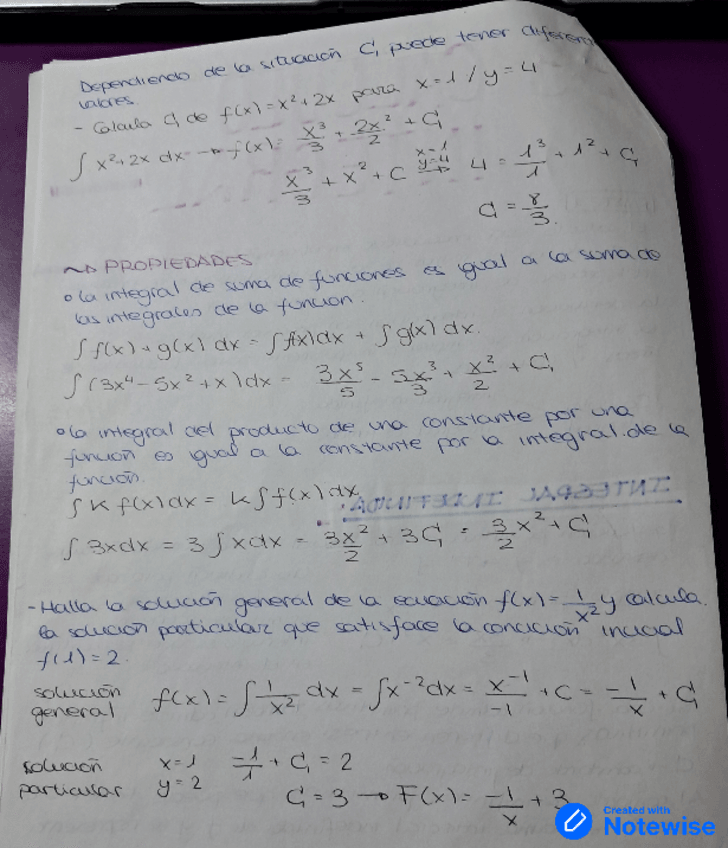 Dependiendo de la situación C, puede tener diferen
valores.
- Calcula C, de f(x) = x² + 2x para x=1 / y=4
∫ x² + 2x dx → f(x) = x³/3 + 2x²/2 + C
x³/3 + x² + C x=1 y=4 → 4 = 1³/1 + 1² + C
C = 8/3.
~> PROPIEDADES
o la integral de suma de funciones es igual a la suma de
las integrales de la función.
∫ f(x) + g(x) dx = ∫ f(x) dx + ∫ g(x) dx.
∫ (3x⁴ - 5x² + x) dx = 3x⁵/5 - 5x³/3 + x²/2 + C
o la integral del producto de una constante por una
función es igual a la constante por la integral de la
función.
∫ K f(x) dx = K ∫ f(x) dx
INTEGRAL INDEFINIDA
∫ 3x dx = 3 ∫ x dx = 3x²/2 + 3C = 3/2 x² + C
- Halla la solución general de la ecuación f(x) = 1/x² y calcula
la solución particular que satisface la condición inicial
f(1) = 2.
solución general f(x) = ∫ 1/x² dx = ∫ x⁻² dx = x⁻¹/-1 + C = -1/x + C
solución particular x=1 y=2 -1/1 + C = 2
C = 3 → F(x) = -1/x + 3
Created with
Notewise